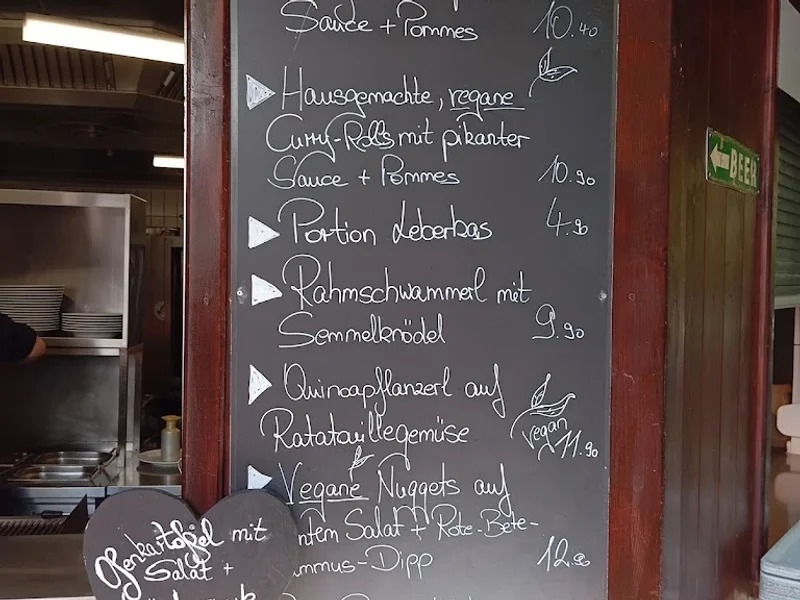 Sauce + Pommes 10.40
Hausgemachte, vegane
Curry-Rolls mit pikanter
Sauce + Pommes 10.90
Portion Leberkas 4.90
Rahmschwammerl mit
Semmelknödel 9.90
Quinoapflanzerl auf
Ratatouillegemüse vegan 11.90
Vegane Nuggets auf
ntem Salat + Rote-Bete-
ummus-Dipp 12.90
Ofenkartoffel mit
Salat +
BEER